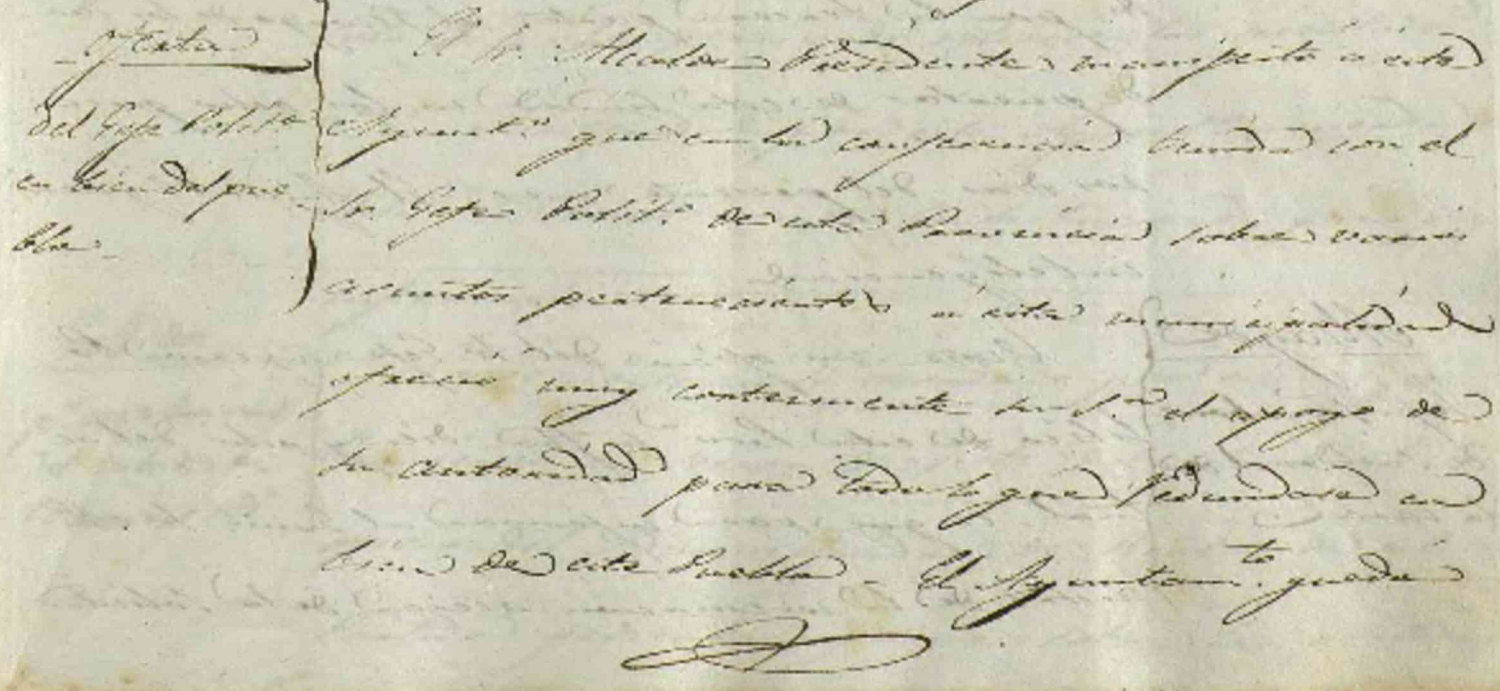 Oferta
del Gefe Polit.º
en bien del pue-
blo.
El Sr. Alcalde Presidente manifestó a este
Ayunt.º que en la conferencia tenida con el
Sr. Gefe Polit.º de esta Provincia sobre varios
asuntos pertenecientes á esta municipalidad
ofreció muy cortesmente su S.ª el apoyo de
su autoridad para todo lo que redundase en
bien de este Pueblo - El Ayuntam.to quedó